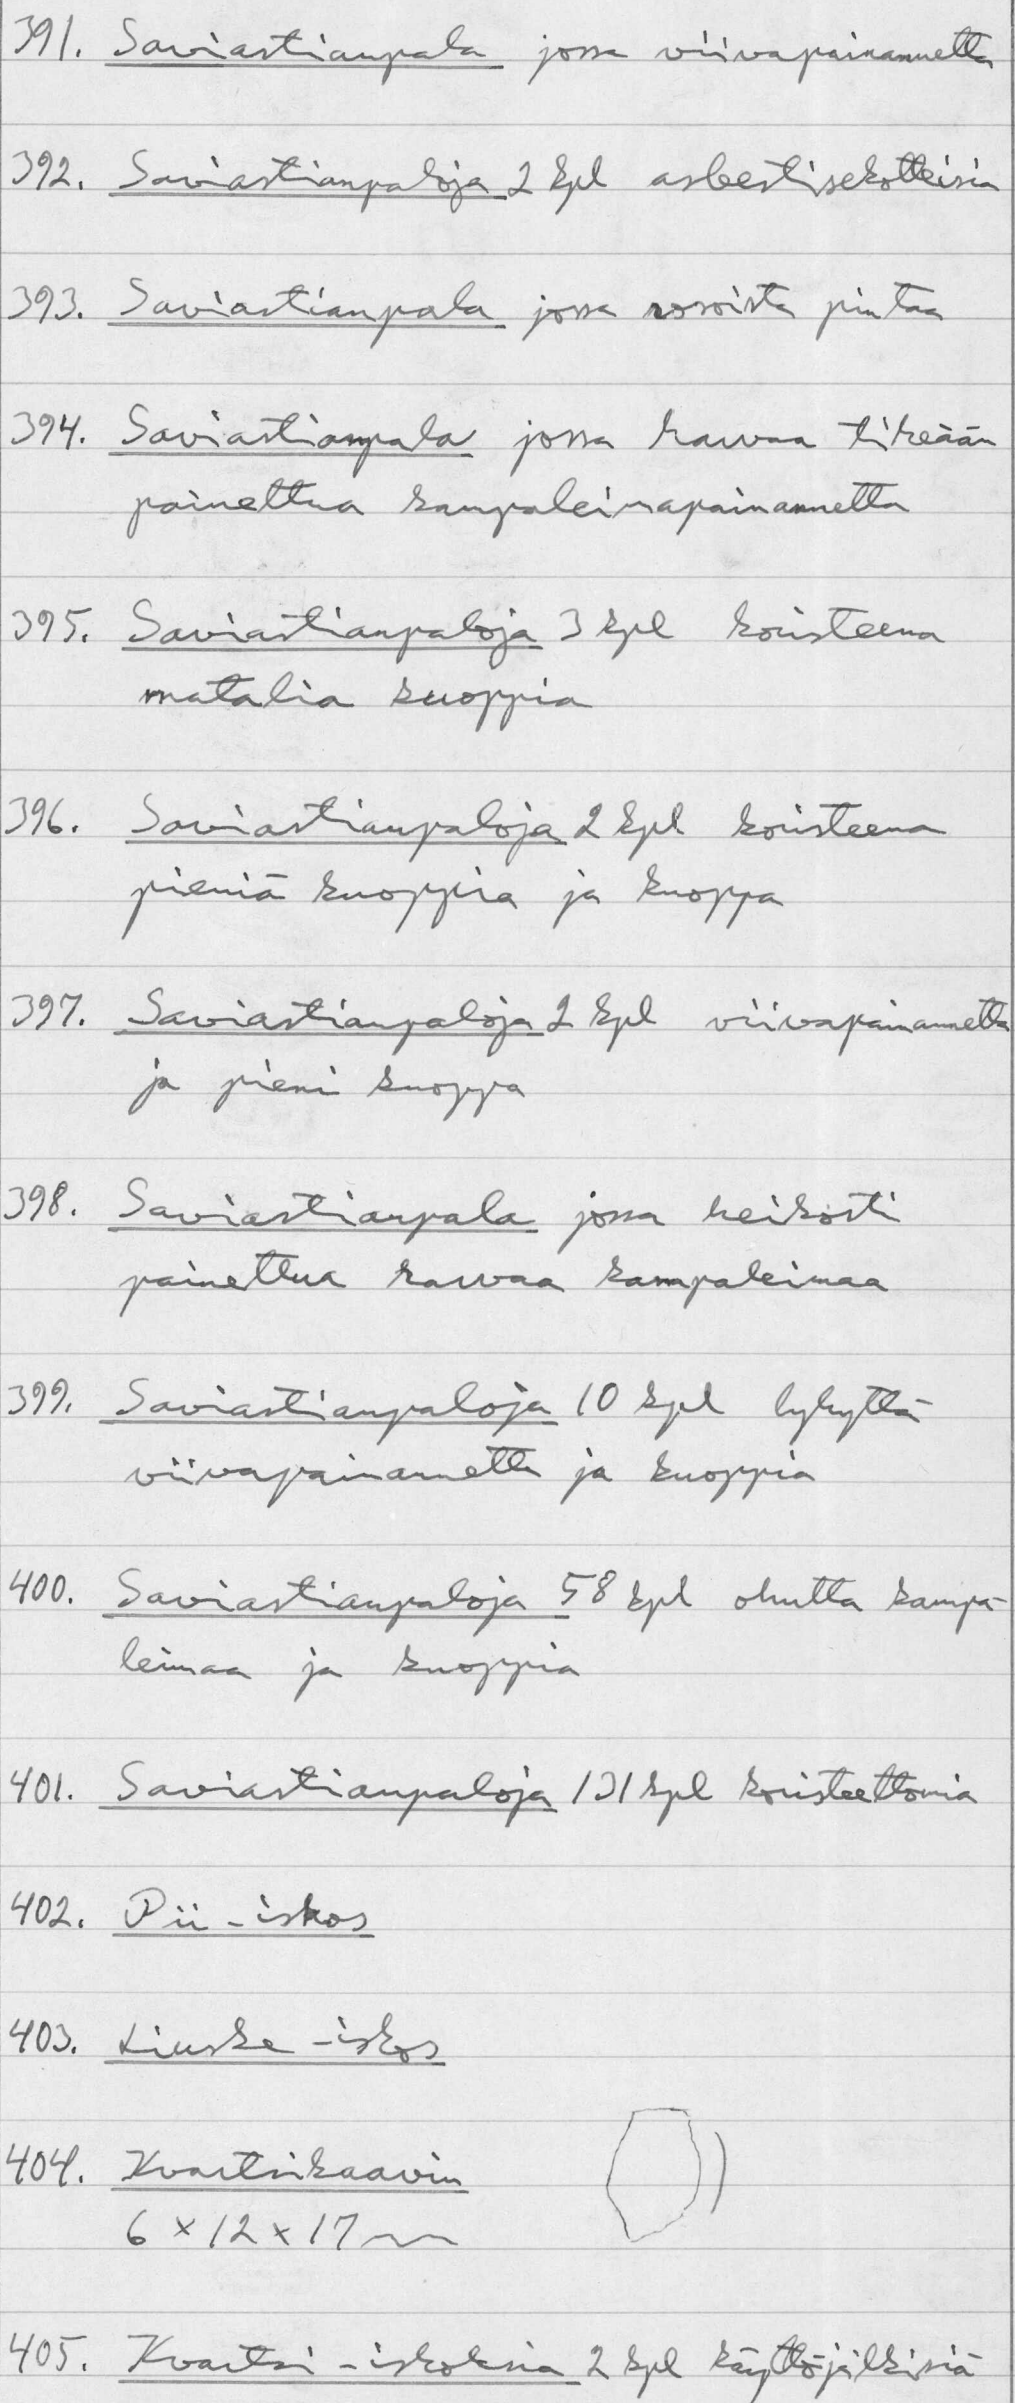 391. Saviastianpala jossa viivapainannetta
392. Saviastianpaloja 2 kpl asbestisekotteisia
393. Saviastianpala jossa rosoista pintaa
394. Saviastianpala jossa harvaa tiheään
painettua kampaleimapainannetta
395. Saviastianpaloja 3 kpl koristeena
matalia kuoppia
396. Saviastianpaloja 2 kpl koristeena
pieniä kuoppia ja kuoppa
397. Saviastianpaloja 2 kpl viivapainannetta
ja pieni kuoppa
398. Saviastianpala jossa heikosti
painettua harvaa kampaleimaa
399. Saviastianpaloja 10 kpl lyhyttä
viivapainannetta ja kuoppia
400. Saviastianpaloja 58 kpl ohutta kampa-
leimaa ja kuoppia
401. Saviastianpaloja 131 kpl koristeettomia
402. Pii-iskos
403. Liuske-iskos
404. Kvartsikaavin
6 x 12 x 17 mm
405. Kvartsi-iskoksia 2 kpl käyttöjälkisiä